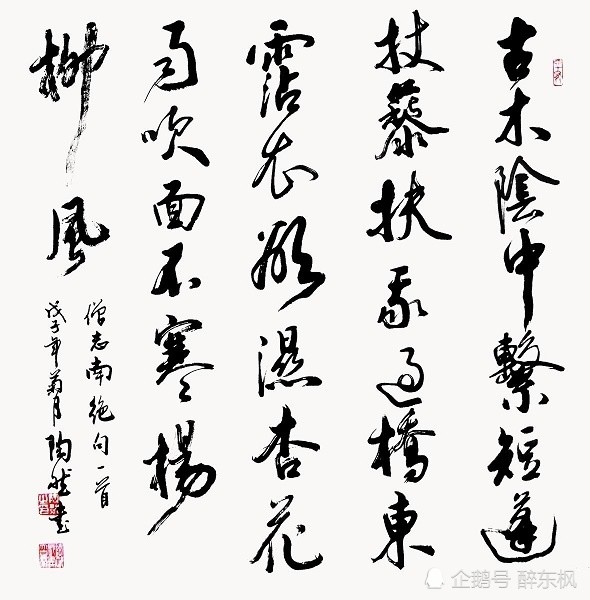 古木陰中繫短蓬
杖藜扶我過橋東
霑衣欲濕杏花
雨吹面不寒楊
柳風
僧志南絶句一首
戊子年菊月陶然書
企鹅号 醉东枫